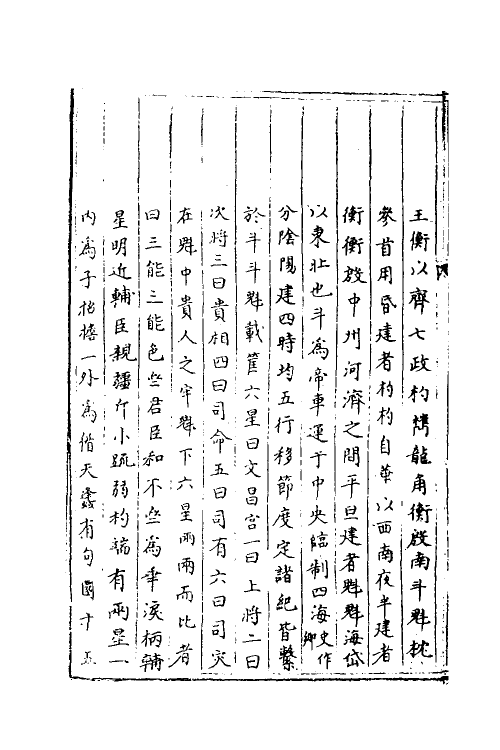 王衡以齊七政杓㩦龍角衡殷南斗魁枕
參首用昏建者杓杓自華以西南夜半建者
衡衡殷中州河濟之間平旦建者魁魁海岱
以東北也斗為帝車運于中央臨制四海史作鄉
分陰陽建四時均五行移節度定諸紀皆繫
於斗斗魁載筐六星曰文昌宫一曰上將二曰
次將三曰貴相四曰司命五曰司有六曰司灾
在魁中貴人之牢魁下六星兩兩而比者
曰三能三能色些君臣和不些為乖淚柄輔
星明近輔臣親彊斤小䟽弱杓端有兩星一
内為子招揺一外為偕天蠭有句圜十五